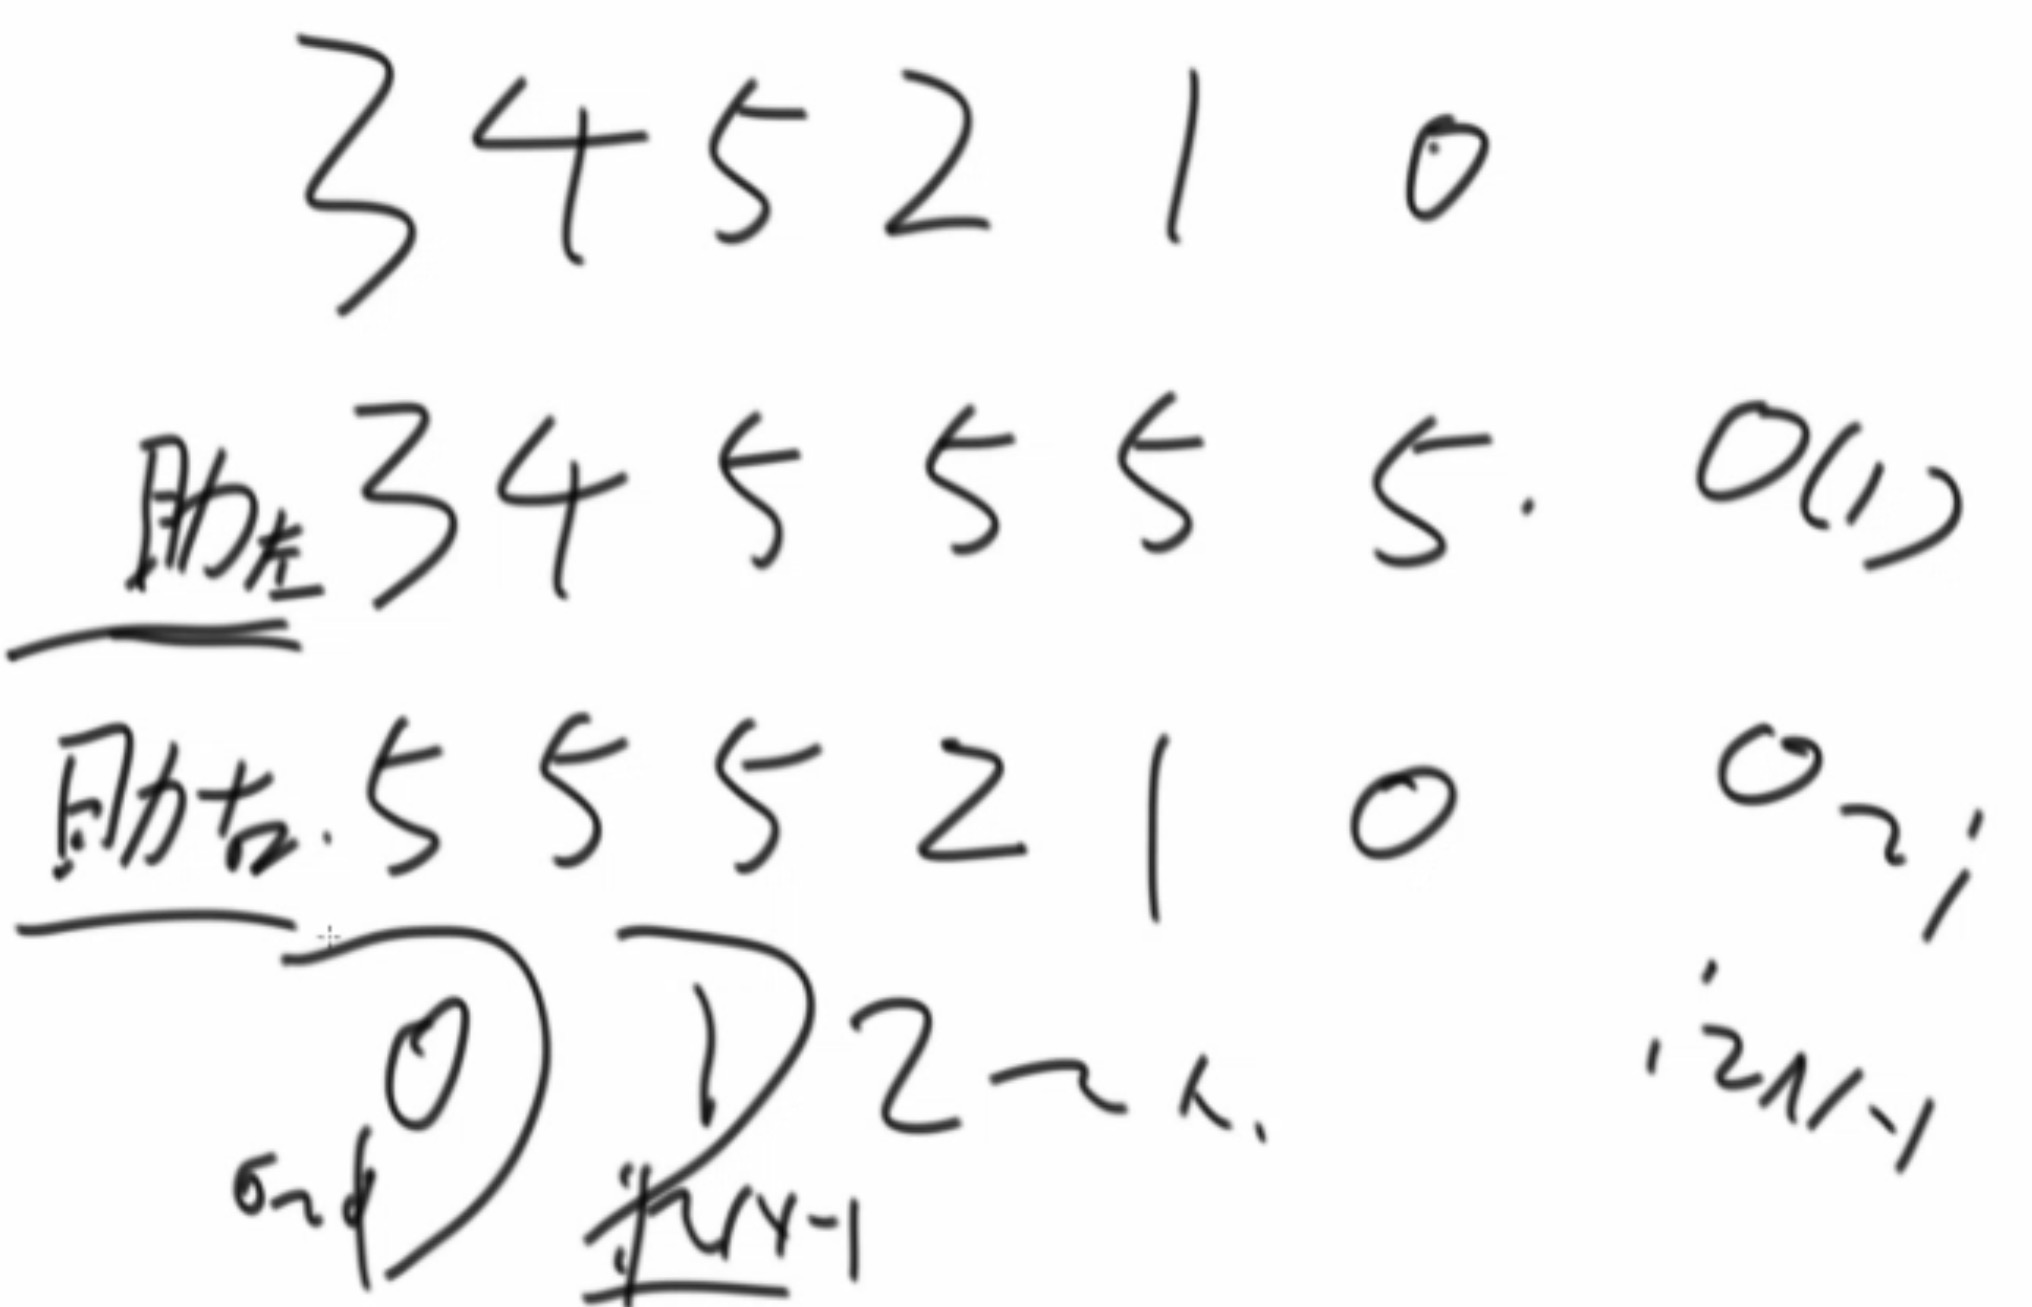 3 4 5 2 1 0
助左 3 4 5 5 5 5. O(1)
助右. 5 5 5 2 1 0 0~i
0 1 2~
N-1